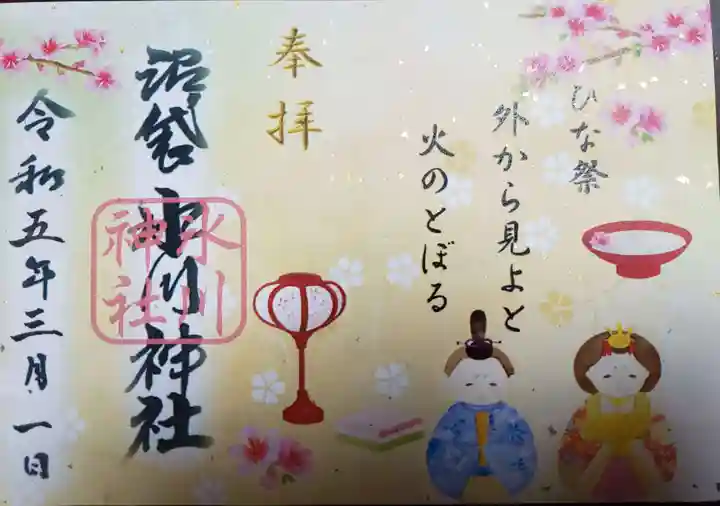 ひな祭
外から見よと
火のとぼる
奉拝
沼袋氷川神社
氷川
神社
令和五年三月一日